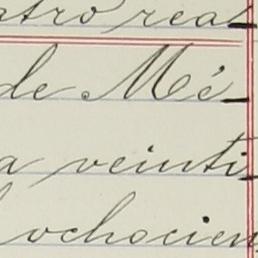 atro real
de Mé-
a veinti-
ochocien